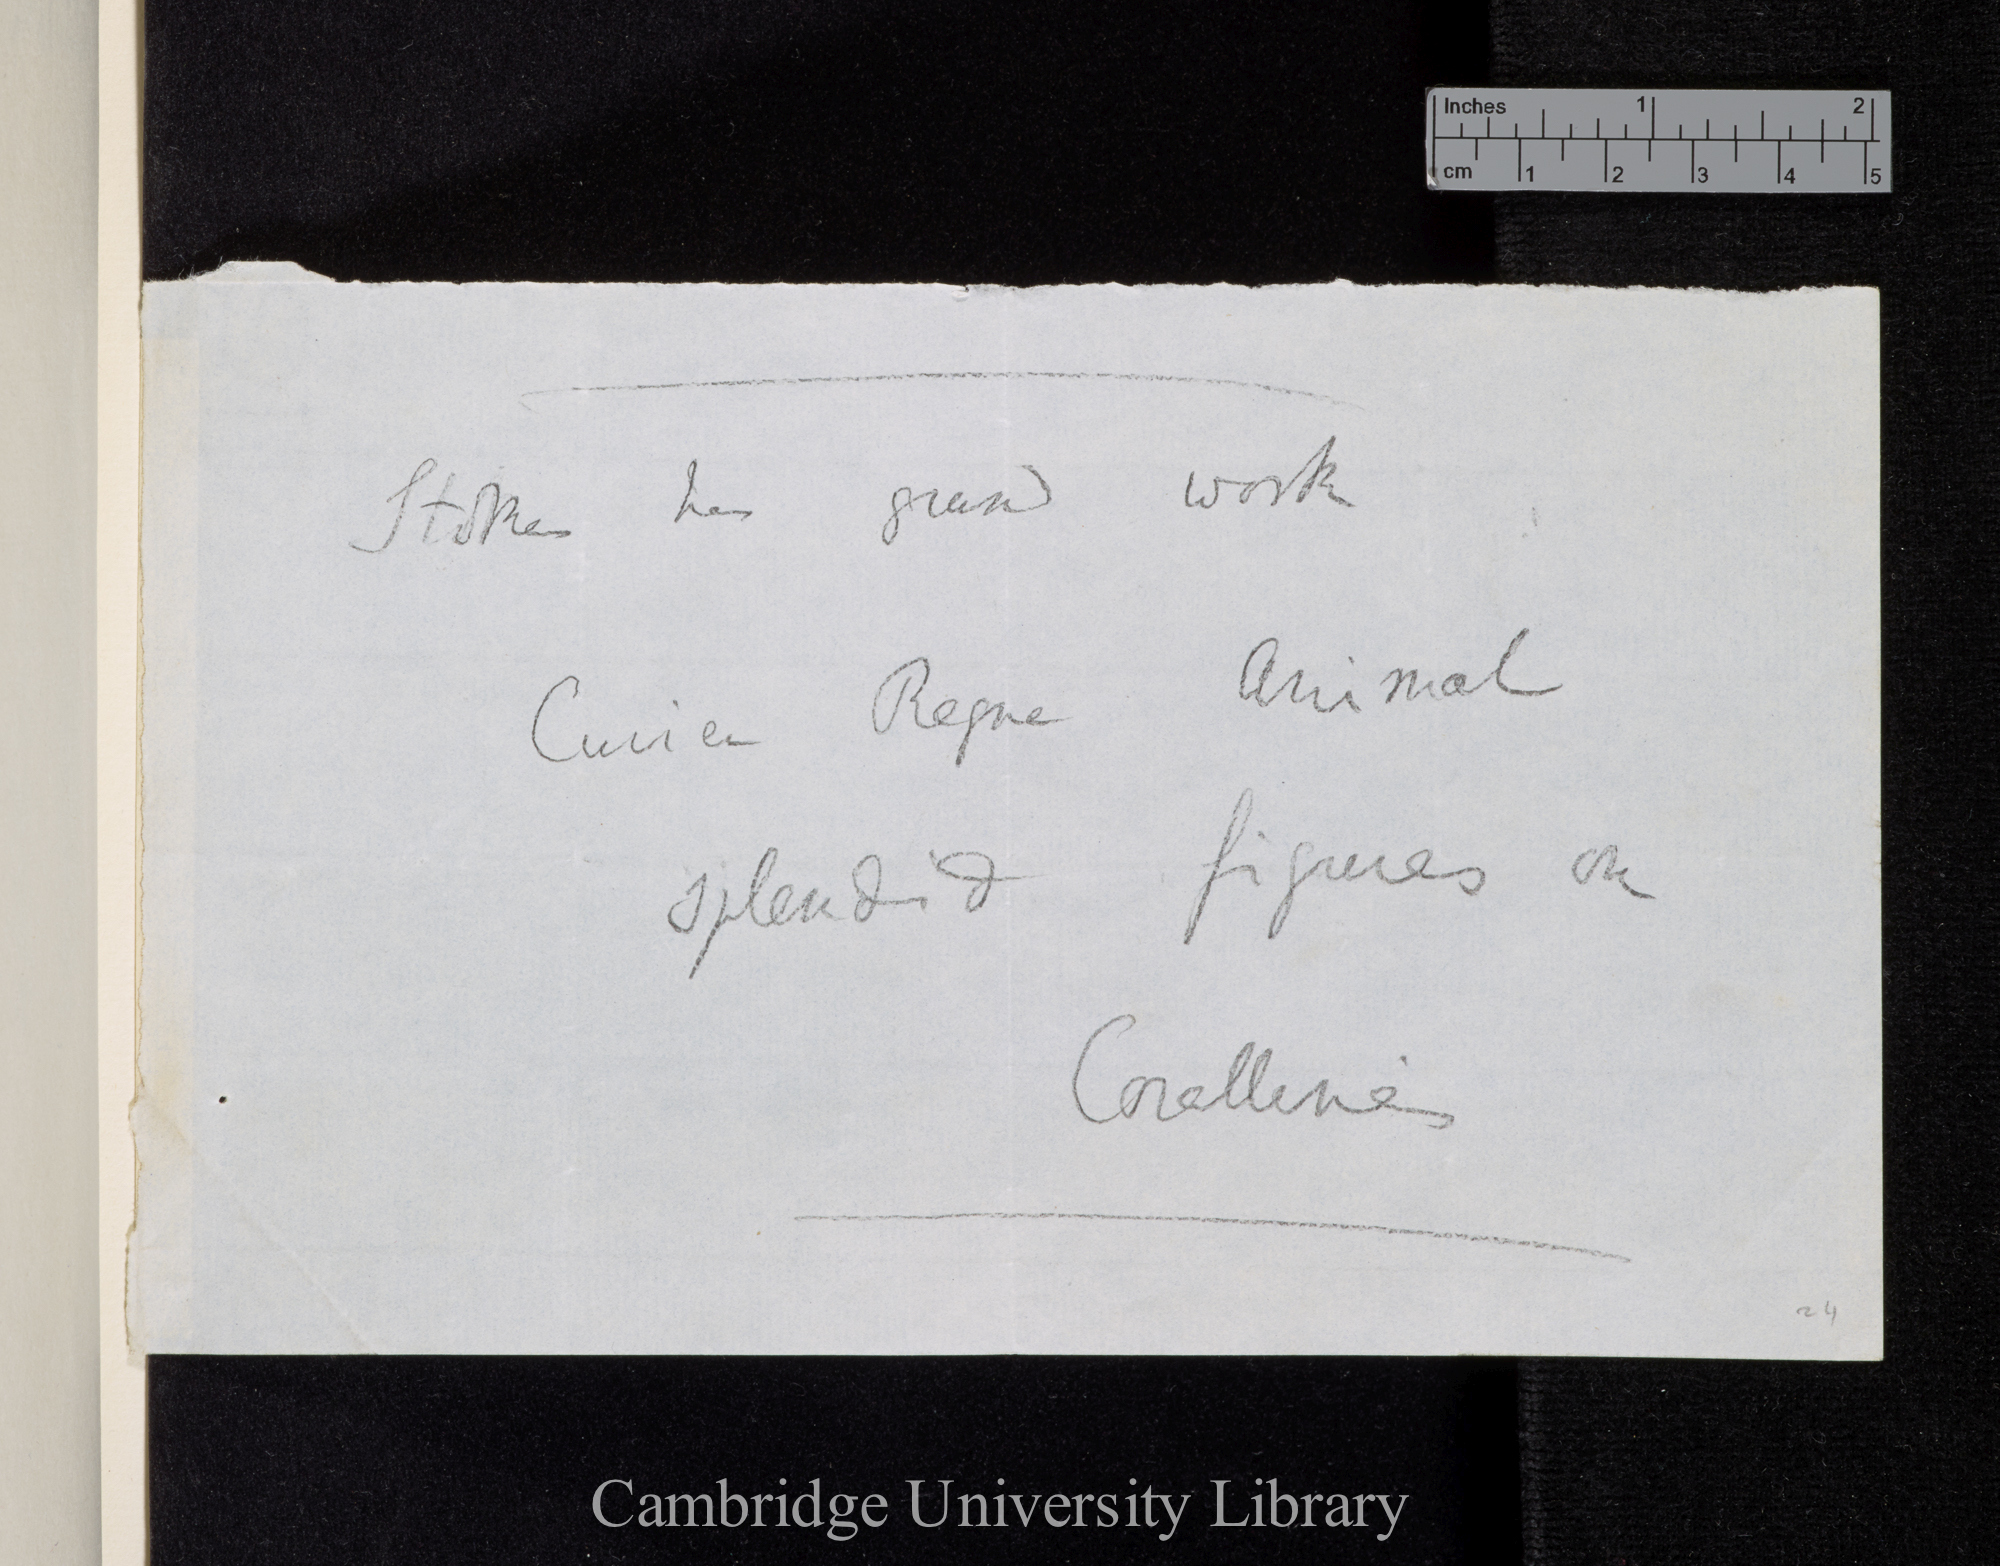 Inches 1 2
cm 1 2 3 4 5
Stokes has grand work
Cuvier Regne Animal
splendid figures on
Corallines
24
Cambridge University Library